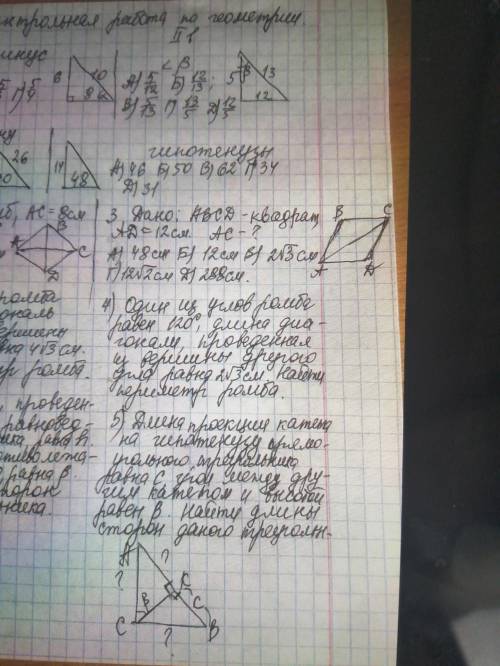 контрольная работа по геометрии
II в
инус
6 10 8
< β
А) 5/12 Б) 12/13;
В) 5/13 Г) 13/5 Д) 12/5
β 5 13 12
26
14 48
гипотенузы
А) 46 Б) 50 В) 62 Г) 34
Д) 31
AC = 8см
B
A C
D
3. Дано: ABCD - квадрат,
AD = 12см. AC - ?
А) 48см Б) 12см В) 2√3 см
Г) 12√2 см Д) 288см.
B C
A D
ромба
ональ
вершины
вна 4√3 см.
ромба.
4) Один из углов ромба
равен 120°, длина диа-
гонали, проведенная
из вершины другого
угла равна 2√3 см. Найти
периметр ромба.
, проведен-
равнобед-
ника равна h.
равна β.
сторон
ьника.
5) Длина проекции катета
на гипотенузу прямо-
угольного треугольника
равна C, угол между дру-
гим катетом и высотой
равен β. Найти длины
сторон даного треугольн-
A
? ?
K
β C
C ? B